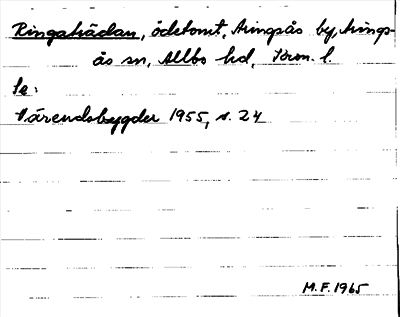 Ringahädan, ödetomt, Aringsås by, Arings-
ås sn, Allbo hd, Kron. l.
Se:
Värendsbygder 1955, s. 24
M.F. 1965